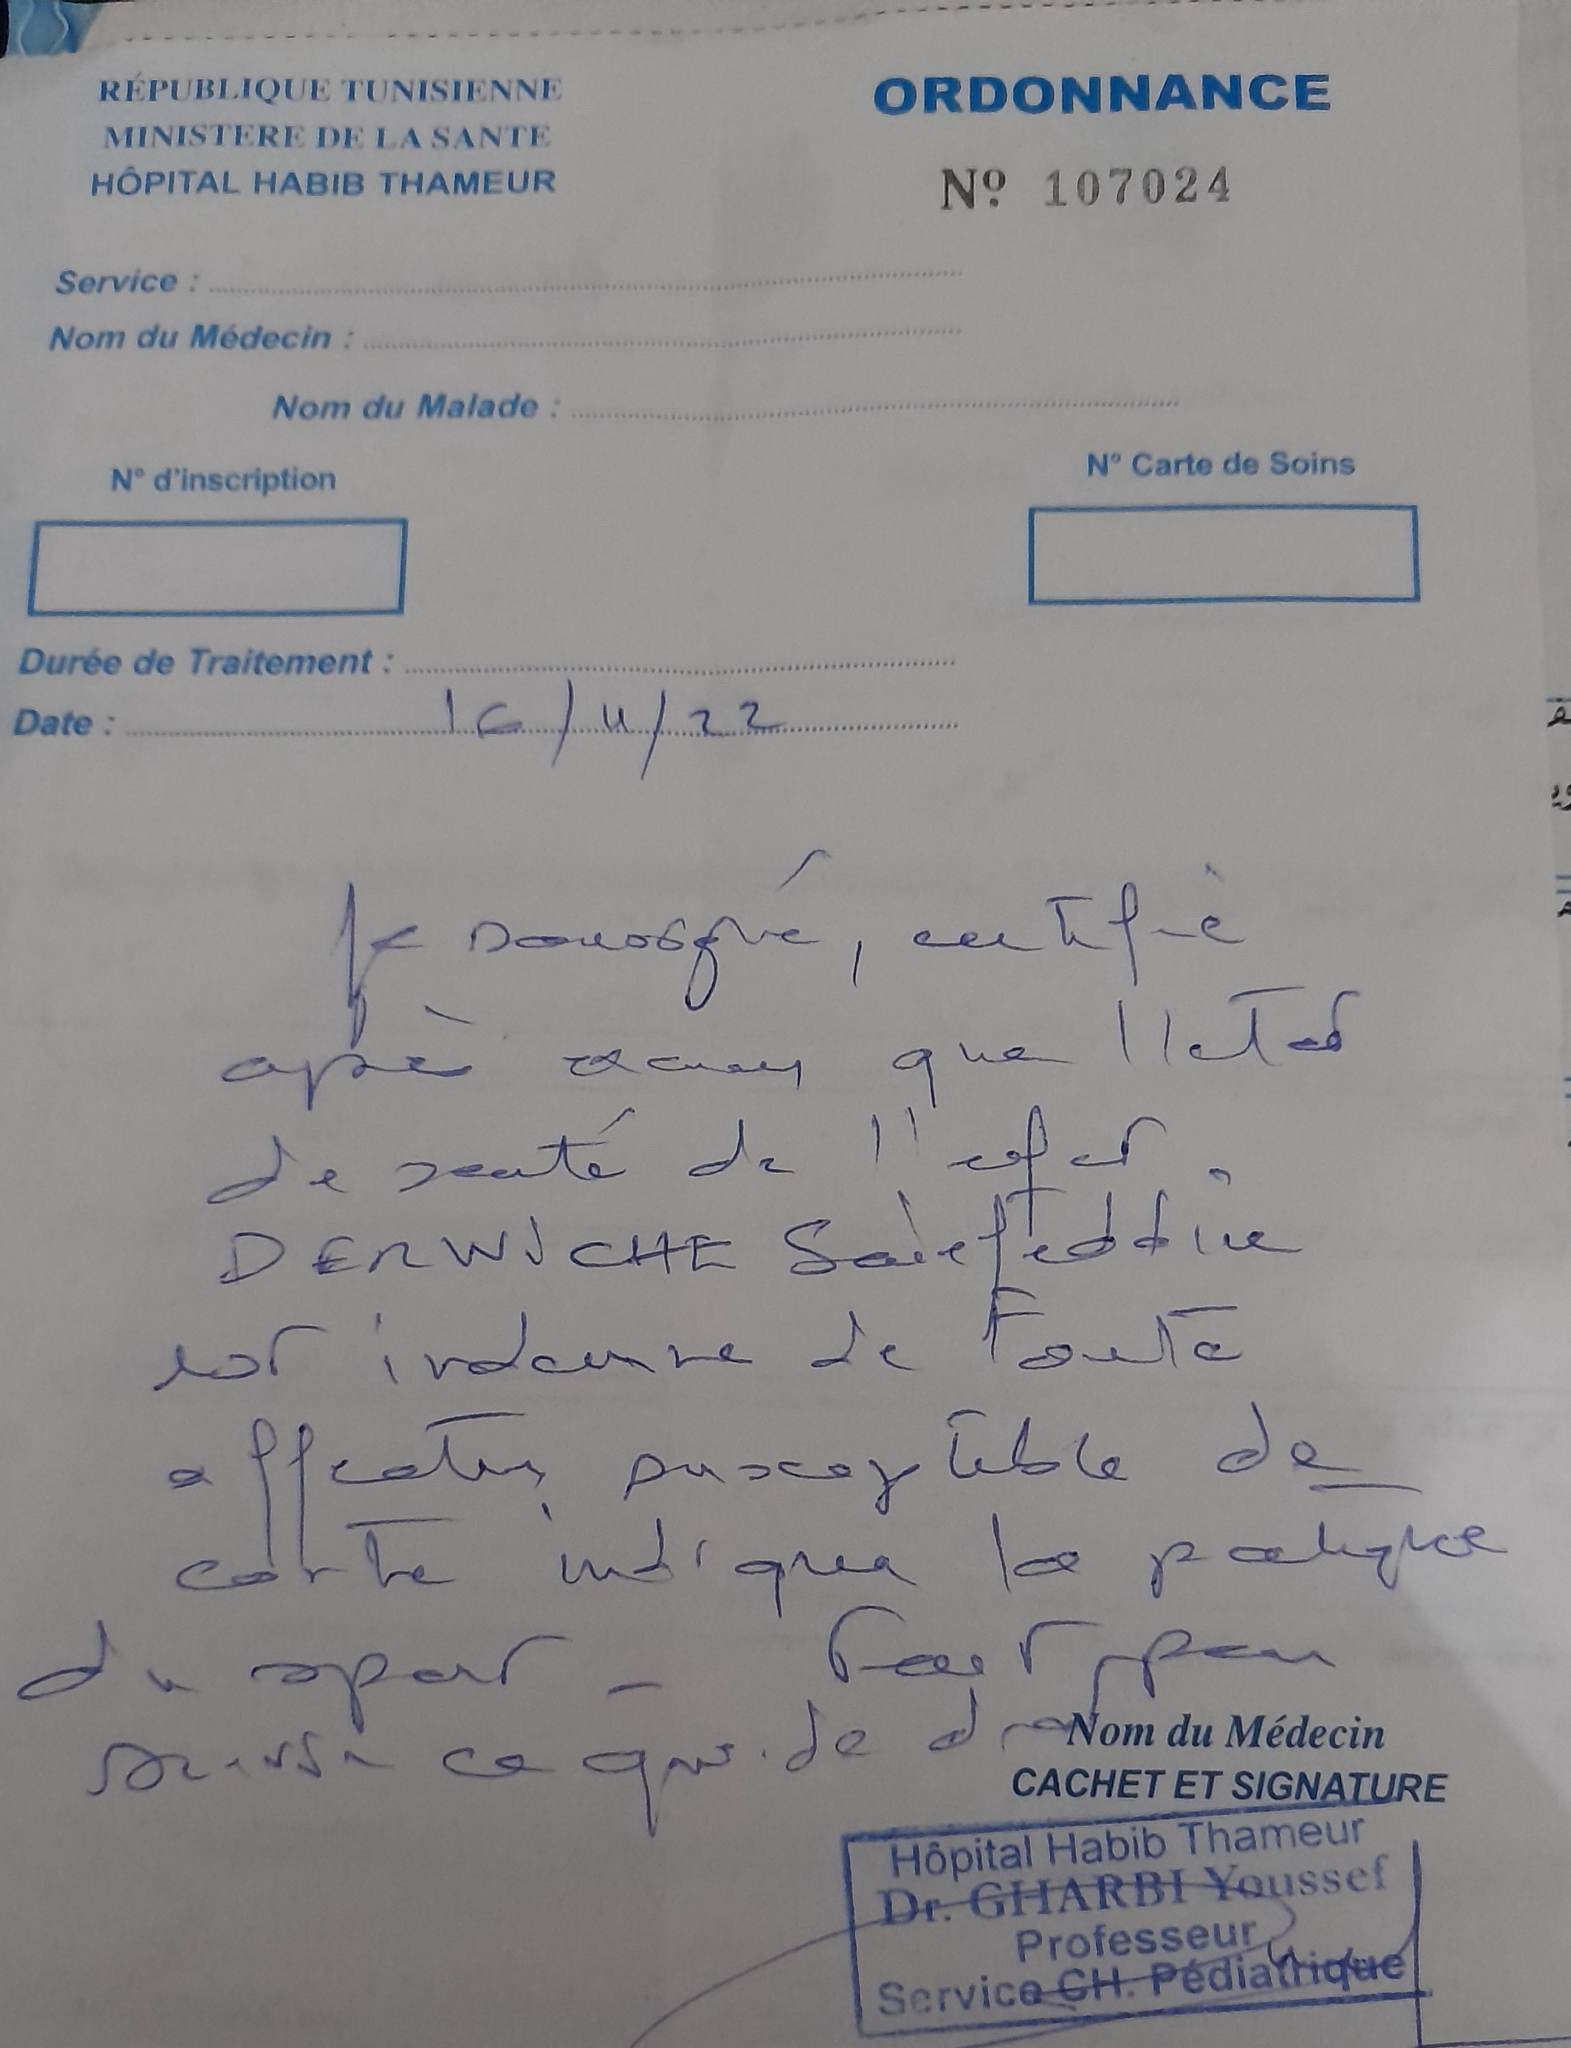 RÉPUBLIQUE TUNISIENNE
MINISTERE DE LA SANTE
HÔPITAL HABIB THAMEUR
ORDONNANCE
Nº 107024
Service :
Nom du Médecin :
Nom du Malade :
N° d'inscription
N° Carte de Soins
Durée de Traitement :
Date : 16/11/22
Je soussigné, certifie
après examen que l'état
de santé de l'enfant
DERWICHE Saiefeddine
est indemne de toute
affection susceptible de
contre indiquer la pratique
du sport - Fait pour
servir ce que de droit
Nom du Médecin
CACHET ET SIGNATURE
Hôpital Habib Thameur
Dr. GHARBI Youssef
Professeur
Service CH. Pédiatrique